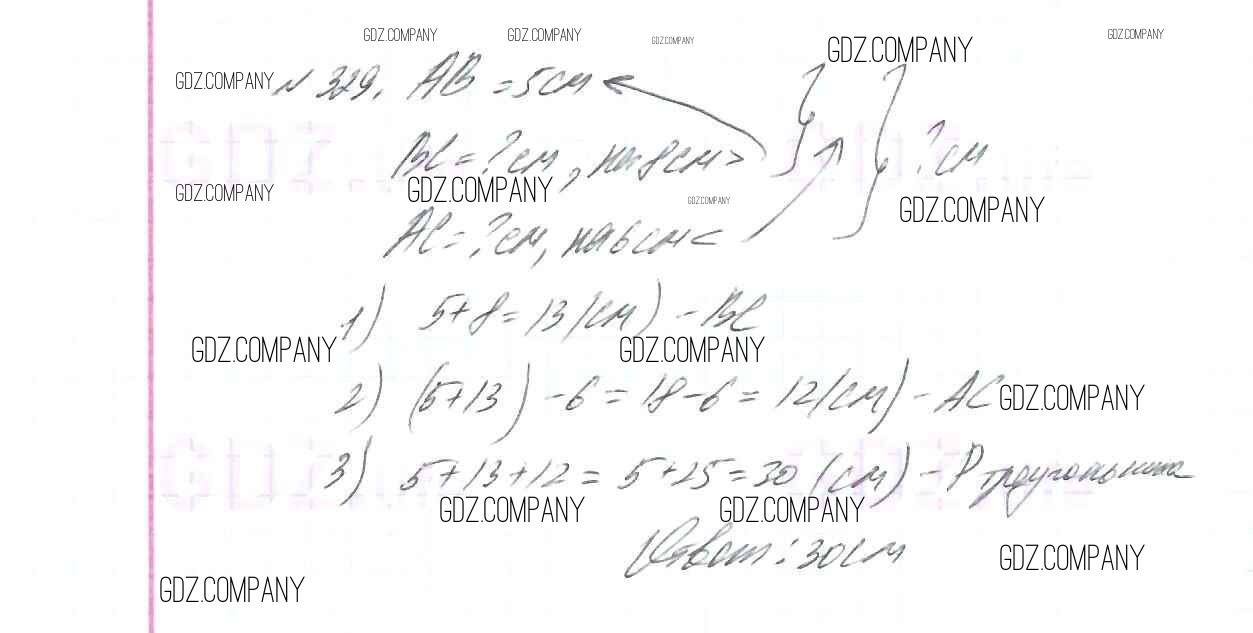 GDZ.COMPANY GDZ.COMPANY GDZ.COMPANY GDZ.COMPANY GDZ.COMPANY
GDZ.COMPANY № 329. AB = 5см
BC = ? см, на 8 см > ? см
GDZ.COMPANY GDZ.COMPANY GDZ.COMPANY GDZ.COMPANY
AC = ? см, на 6 см <
1) 5+8=13 (см) - BC
GDZ.COMPANY GDZ.COMPANY
2) (5+13) - 6 = 18-6 = 12 (см) - AC GDZ.COMPANY
3) 5+13+12 = 5+25=30 (см) - P треугольника
GDZ.COMPANY GDZ.COMPANY
Ответ: 30см GDZ.COMPANY
GDZ.COMPANY